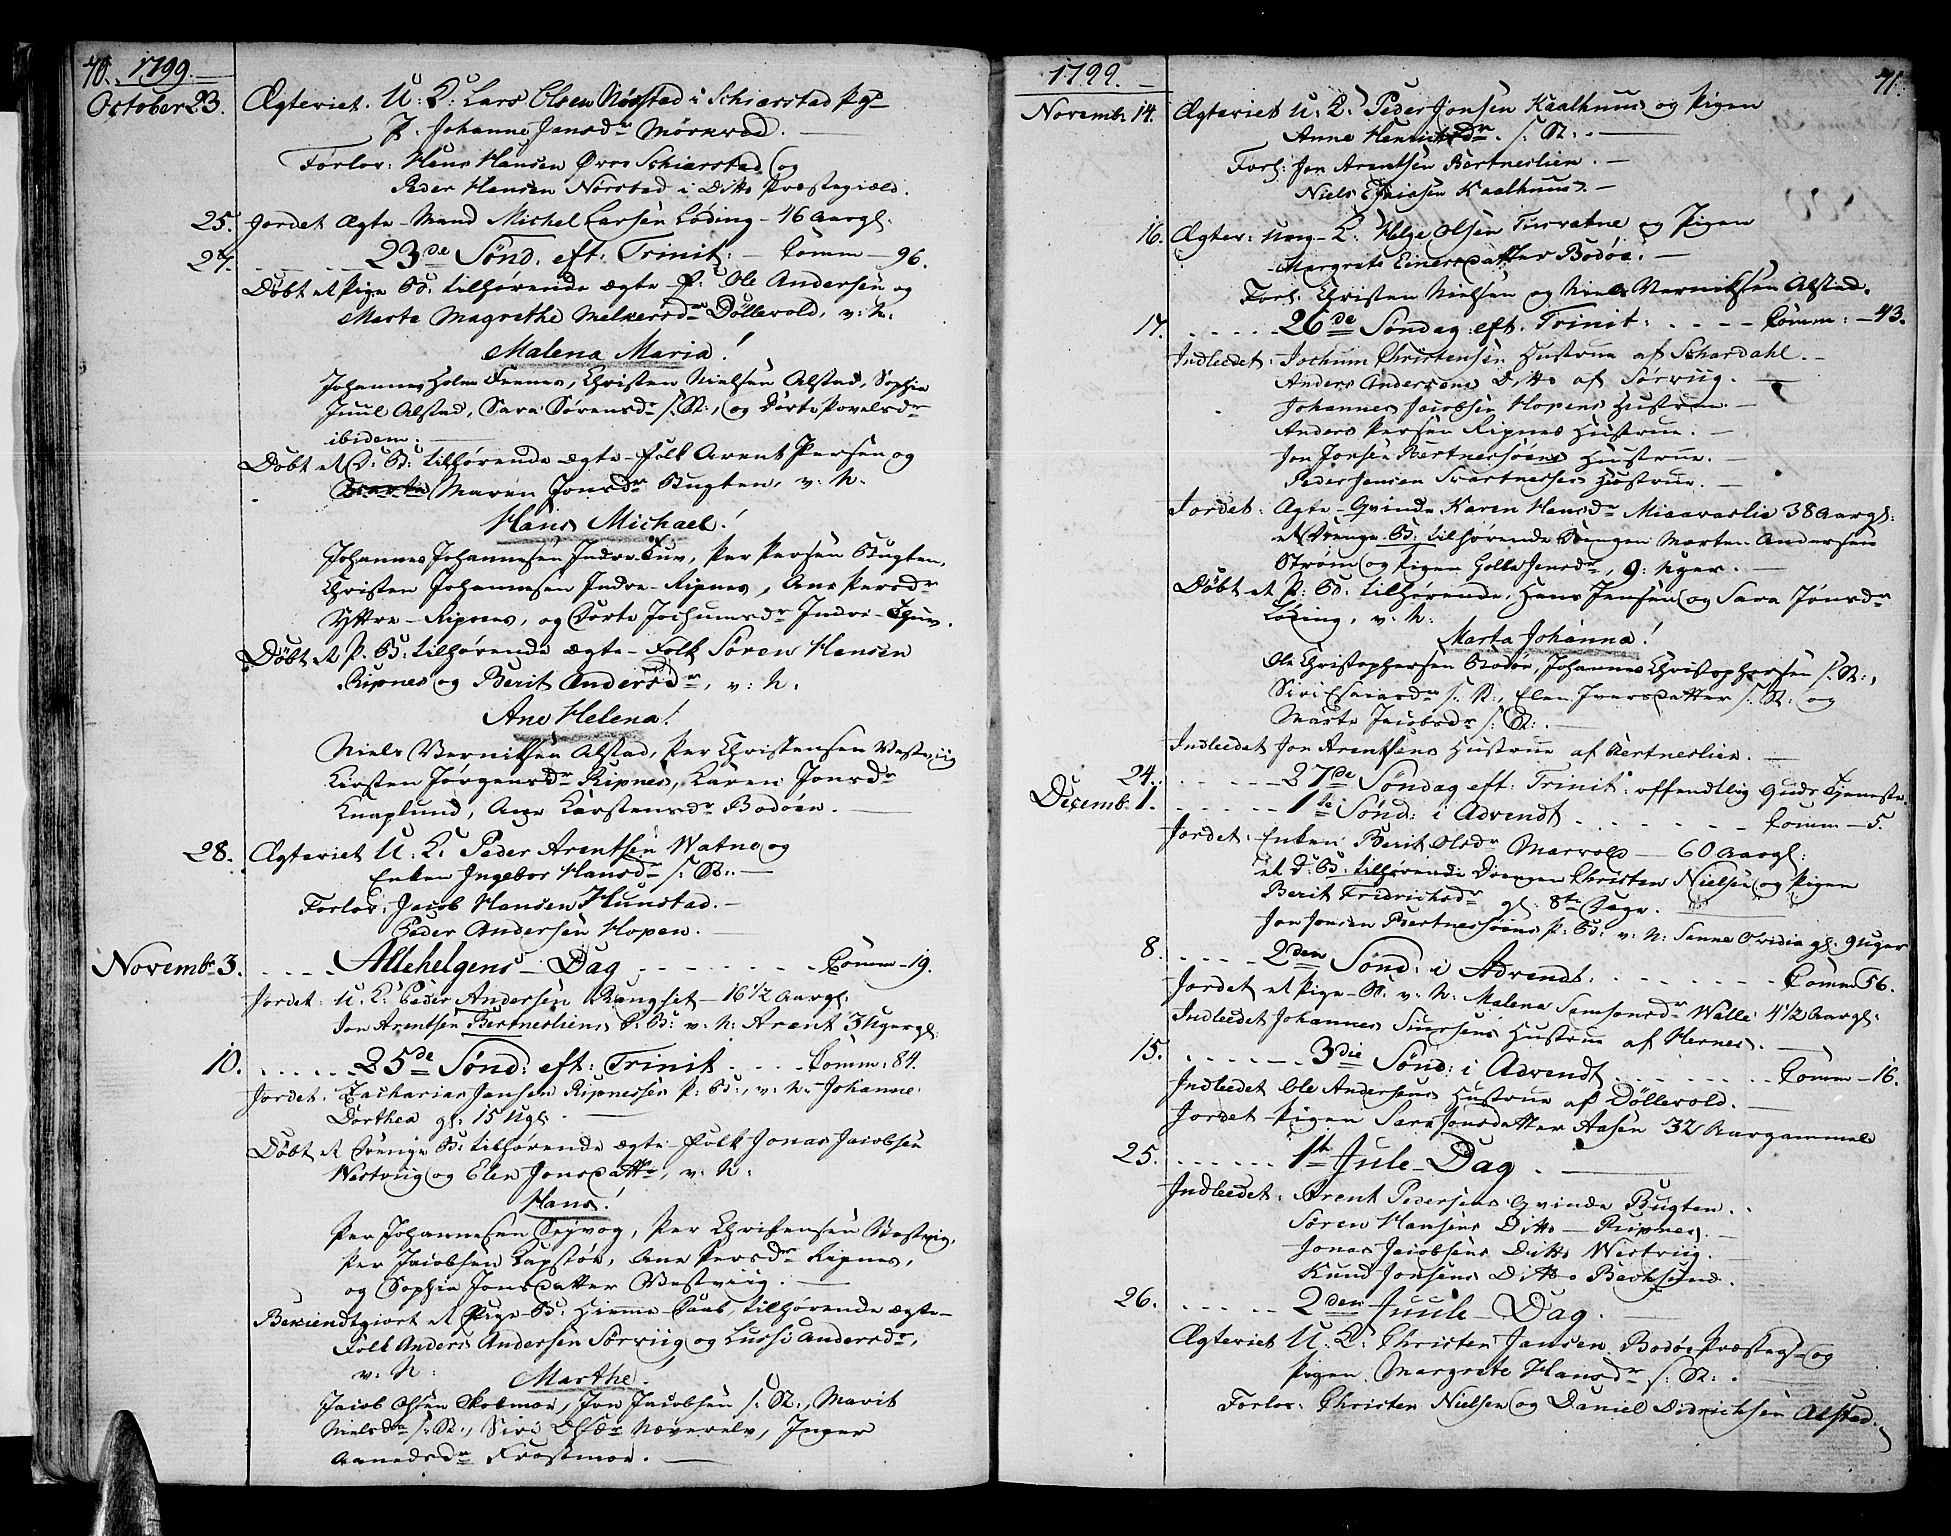 70. 1799.
October 23. Ægteviet. U: K: Lars Olsen Nørstad i Schierstad Pg:
P. Johanne Jansdr Mørkved.
Forlov: Hans Hansen Øvre Schierstad og
Peder Hansen Nørstad i Ditto Præstegiæld.
25. Jordet Ægte-Mand Michel Larsen Løding - 46 Aargl:
27. 23de Sønd: eft: Trinit: - Comm - 96.
Døbt et Pige B: tilhørende ægte-F: Ole Andersen og
Marta Magrethe Melkersdr Döllevold, v: N.
Malena Maria!
Johannes Holm Fennes, Christen Nielsen Alstad, Sophia
Juul Alstad, Sara Sørensdr s: St:, og Dorte Povelsdr
ibidem.
Døbt et D: B: tilhørende ægte-Folk Arent Persen og
Maren Jonsdr Bugten, v: N.
Hans Michael!
Johannes Johannesen Indre Tuv, Per Persen Bugten,
Christen Johannesen Indre-Ripnes, Ane Persdr
Yttre-Ripnes, og Dorte Jochumsdr Indre-Tuv.
Døbt et P. B: tilhørende ægte-Folk Søren Hansen
Ripnes og Berit Andersdr, v: N.
Ane Helena!
Niels Bernitsen Alstad, Per Christensen Vestviig
Kirsten Jørgensdr Ripnes, Karen Jonsdr
Knaplund, Ane Karstensdr Bodøen.
28. Ægteviet U: K: Peder Arentsen Watne og
Enken Ingebor Hansdr s: St:.
Forlov: Jacob Hansen Hunstad.
Peder Andersen Hopen.
Novembr. 3. Allehelgens-Dag Comm - 19.
Jordet: U: K: Peder Andersen Kangset - 16 1/2 Aargl:
Jon Arentsen Bertnesliens D: B: v: N: Arent 3 Ugergl:
10. 25de Sønd: eft: Trinit Comm: 84.
Jordet: Zacharias Jansen Ripnessen P: B:, v: N. Johanna
Dorthea gl: 15 Ugl:
Døbt et Drenge B: tilhørende ægte-Folk Jonas Jacobsen
Westviig og Elen Jonsdatter, v: N:
Hans!
Per Johannesen Seyvog, Per Christensen Vestviig,
Per Jacobsen Lapstøe, Ane Persdr Ripnes,
og Sophia Jonsdatter Vestviig.
Bekiendtgiort et Pige-B: Hiemme-Daab, tilhørende ægte-
Folk Anders Andersen Sørviig og Lussi Andersdr,
v: N: Marthe!
Jacob Olsen Skobmoe, Jon Jacobsen s: St:, Marit
Nielsdr s: St:, Siri Olsdr Næverelv, Inger
Aanedsdr Frostmoe.
1799. 71.
Novembr. 14. Ægteviet U: K: Peder Jonsen Kaalhuus og Pigen
Anne Henrichsdr. s: St:.
Forl: Jon Arentsen Bertneslien.
Niels Kaalhuus.
16. Ægtev: Ung-K: Helge Olsen Tusvatne og Pigen
Margrete Einersdatter Bodøe.
Forl: Christen Nielsen og Niels Bernitsen Alstad.
17. 26de Søndag eft: Trinit: Comm: - 43.
Indleedet: Jochum Christensen Hustrue af Schardahl.
Anders Andersens Ditto af Sørviig.
Johannes Jacobsen Hopens Hustrue.
Anders Persen Ripnes Hustrue.
Jon Jonsen Bertnessøens Hustrue.
Peder Jensen Svartnesses Hustrue.
Jordet: Ægte-Qvinde Karen Hansdr Misværlie 38 Aargl:
et Drenge B: tilhørende Drengen Morten Andersen
Strøm og Pigen Golla Jensdr, 9: Uger.
Døbt et P: B: tilhørende Hans Jensen og Sara Jonsdr
Løding, v: N:
Marta Johanna!
Ole Christophersen Bodøe, Johannes Christophersen s: St:,
Siri Esaiasdr s: St:, Elen Iversdatter s: St: og
Marta Jacobsdr s: St:.
Indleedet Jon Arentsens Hustrue af Bertneslien.
24. 27de Søndag eft: Trinit: offendtlig Guds Tjeneste.
Decemb: 1. 1te Sønd: i Advendt Comm - 5.
Jordet: Enken Berit Olsdr Marvold - 60 Aargl:
et D: B: tilhørende Drengen Christen Nielsen og Pigen
Berit Fredrichsdr gl: 8te Dage.
Jon Jonsen Bertnessøens P: B: v: N: Sanna Ovidia gl: 9 Uger
8. 2den Sønd: i Advendt Comm 56.
Jordet et Pige-B. v: N: Malena Samsonsdr Walle 4 1/2 Aargl:
Indleedet Johannes Hustrue af Hernes.
15. 3die Sønd: i Advendt Comm - 16.
Indleedet Ole Andersens Hustrue af Döllevold.
Jordet Pigen Sara Jonsdatter Aasen 32 Aargammel
25. 1te Jule-Dag.
Indleedet: Arent Pedersens Qvinde Bugten.
Søren Hansens Ditto - Ripnes.
Jonas Jacobsens Ditto Westviig.
Knud Jonsens Ditto Bachsund.
26. 2den Juule-Dag.
Ægteviet U: K: Christen Jansen Bodøe Præstegl: og
Pigen Margrete Hansdr s: St:.
Forlov: Christen Nielsen og Daniel Didrichsen Alstad.